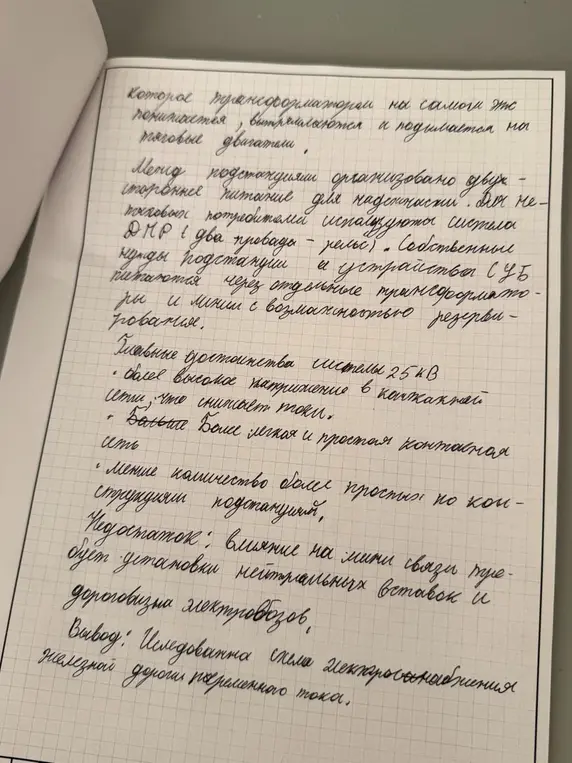 которое трансформатором на самом эпс
понижается, выпрямляются и подимается на
тяговые двигатели.
Между подстанциями организовано двух-
стороннее питание для надежности. Для не-
тяговых потребителей используют система
ДПР (два провода - рельс). Собственные
нужды подстанции и устройства СЦБ
питаются через отдельные трансформато-
ры и линии с возможностью резерви-
рования.
Главные достоинства системы 25кВ
· более высокое напряжение в контакной
сети, что снижает токи.
· Более легкая и простая контакная
сеть
· меньше количество более простых по кон-
струкциям подстанций.
Недостаток: влияние на линии связи тре-
бует установки нейтральных вставок и
дороговизна электровозов.
Вывод: Иследованна схема электроснабжения
железной дороги переменного тока.